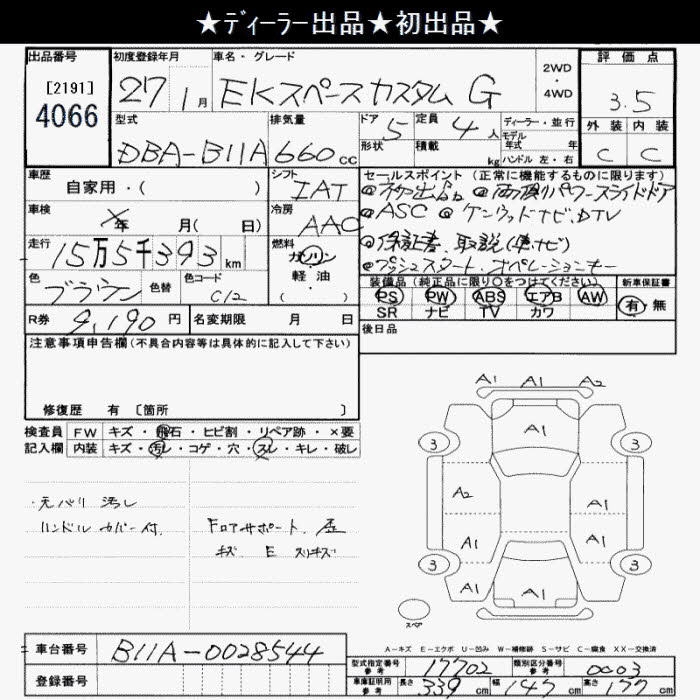 ★ディーラー出品★初出品★
出品番号 初度登録年月 車名・グレード 2WD・4WD 評価点
[2191] 4066 27 1月 EKスペースカスタム G 3.5
型式 排気量 ドア 5 定員 4人 ディーラー・並行 外装 内装
DBA-B11A 660cc 形状 積載 kg モデル年式 年 ハンドル 左・右 C C
車歴 シフト セールスポイント (正常に機能するものに限ります)
自家用・( ) IAT @初出品 @両側パワースライドドア
車検 ×年 月( 日) 冷房 AAC @ASC @ケンウッドナビ、DTV
走行 15万5千393km 燃料 ガソリン @保証書、取説(車、ナビ)
軽油 @プッシュスタート、オペレーションキー
色 ブラウン 色替 色コード C12 ・( ) 装備品 (純正品に限り○をつけてください) 新車保証書
PS PW ABS エアB AW 有・無
SR ナビ TV カワ
R券 9,190円 名変期限 月 日 後日品
注意事項申告欄(不具合内容等は具体的に記入して下さい)
修復歴 有 〔箇所 〕
検査員 FW キズ・飛石・ヒビ割・リペア跡・×要
記入欄 内装 キズ・汚レ・コゲ・穴・スレ・キレ・破レ
A1 A1 A2
A1
3 3
A2 A1
A1 A1
3 3
A1 A1 A1
・元バリ 汚し
ハンドルカバー付、 Fロアサポート、歪
キズ E スリキズ
スペア
A-キズ E-エクボ U-凹み W-補修跡 S-サビ C-腐食 XX-交換済
車台番号 B11A-0028544
型式指定番号 参考 17702 類別区分番号 参考 0003
登録番号 車庫証明用 参考 長さ 339cm 幅 147cm 高さ 177cm